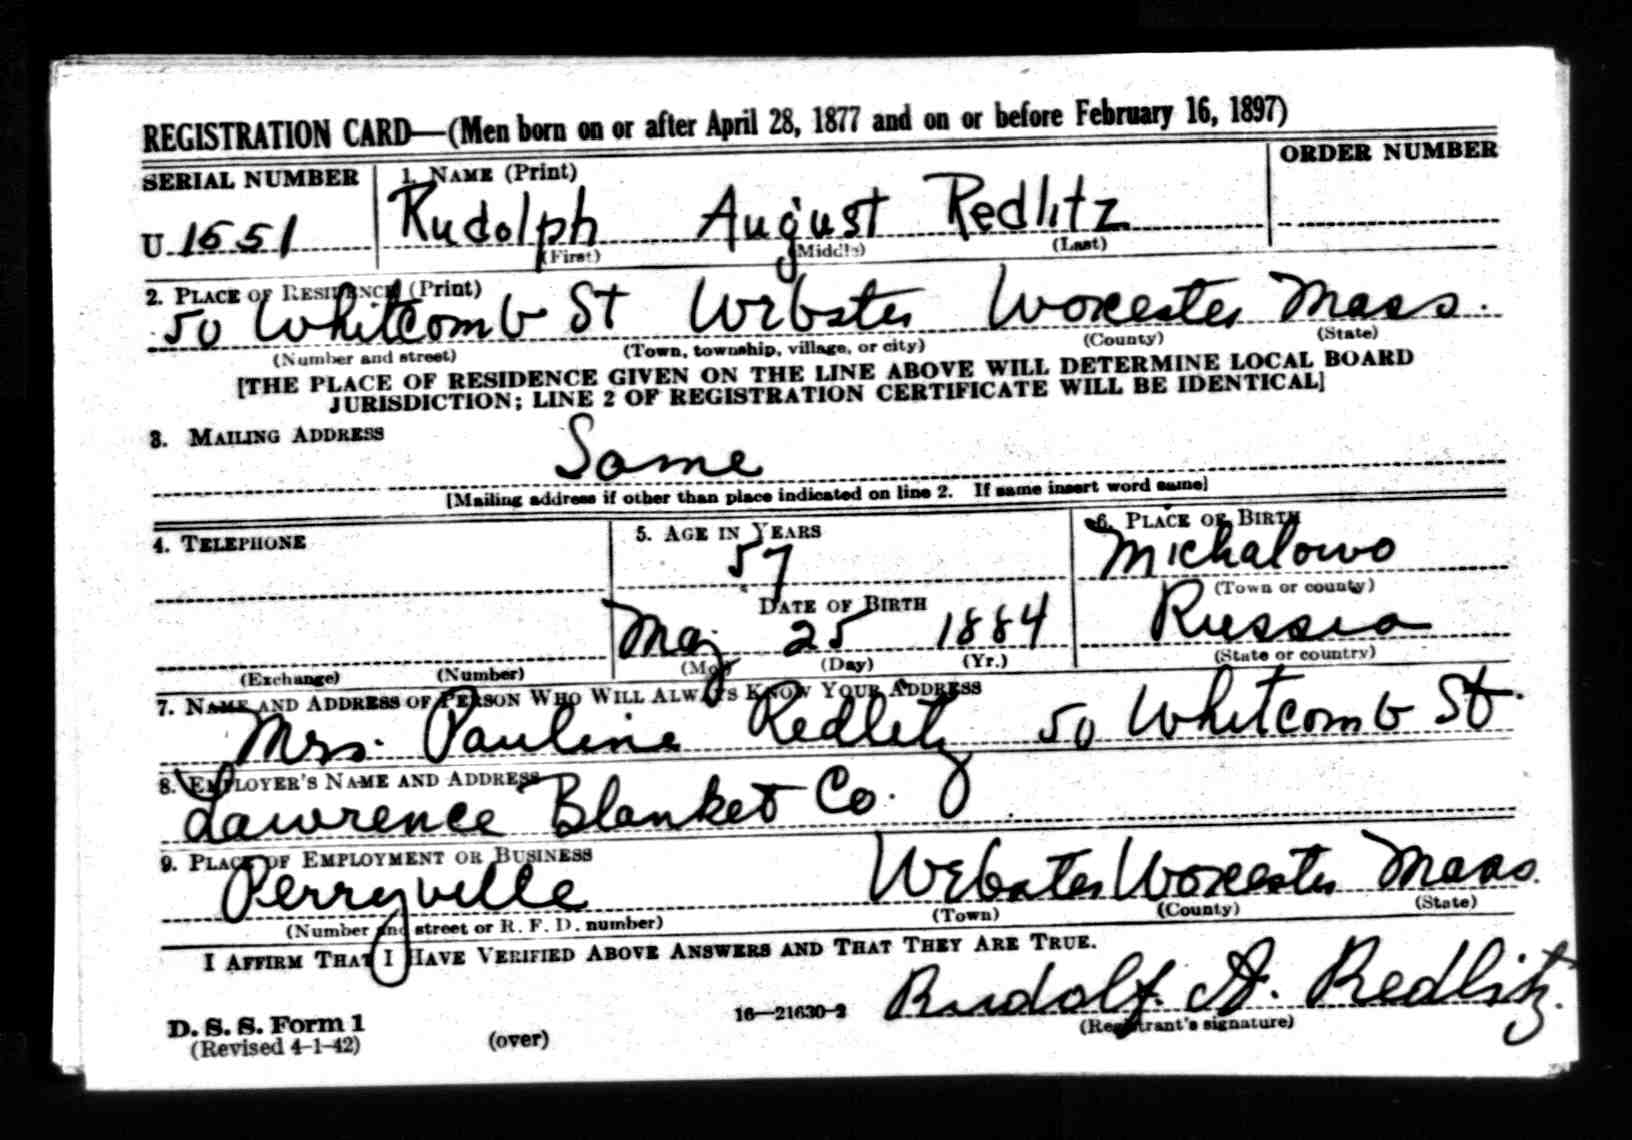 REGISTRATION CARD—(Men born on or after April 28, 1877 and on or before February 16, 1897)
SERIAL NUMBER 1. NAME (Print) ORDER NUMBER
U 1551 Rudolph August Redlitz
(First) (Middle) (Last)
2. PLACE OF RESIDENCE (Print)
50 Whitcomb St Webster Worcester Mass.
(Number and street) (Town, township, village, or city) (County) (State)
[THE PLACE OF RESIDENCE GIVEN ON THE LINE ABOVE WILL DETERMINE LOCAL BOARD
JURISDICTION; LINE 2 OF REGISTRATION CERTIFICATE WILL BE IDENTICAL]
3. MAILING ADDRESS
Same
[Mailing address if other than place indicated on line 2. If same insert word same]
4. TELEPHONE 5. AGE IN YEARS 6. PLACE OF BIRTH
57 Michalowo
(Town or county)
DATE OF BIRTH
May 25 1884 Russia
(Exchange) (Number) (Mo.) (Day) (Yr.) (State or country)
7. NAME AND ADDRESS OF PERSON WHO WILL ALWAYS KNOW YOUR ADDRESS
Mrs. Pauline Redlitz 50 Whitcomb St.
8. EMPLOYER'S NAME AND ADDRESS
Lawrence Blanket Co.
9. PLACE OF EMPLOYMENT OR BUSINESS
Perryville Webster Worcester Mass.
(Number and street or R. F. D. number) (Town) (County) (State)
I AFFIRM THAT I HAVE VERIFIED ABOVE ANSWERS AND THAT THEY ARE TRUE.
Rudolf A. Redlitz.
D. S. S. Form 1 16—21630-2 (Registrant's signature)
(Revised 4-1-42) (over)